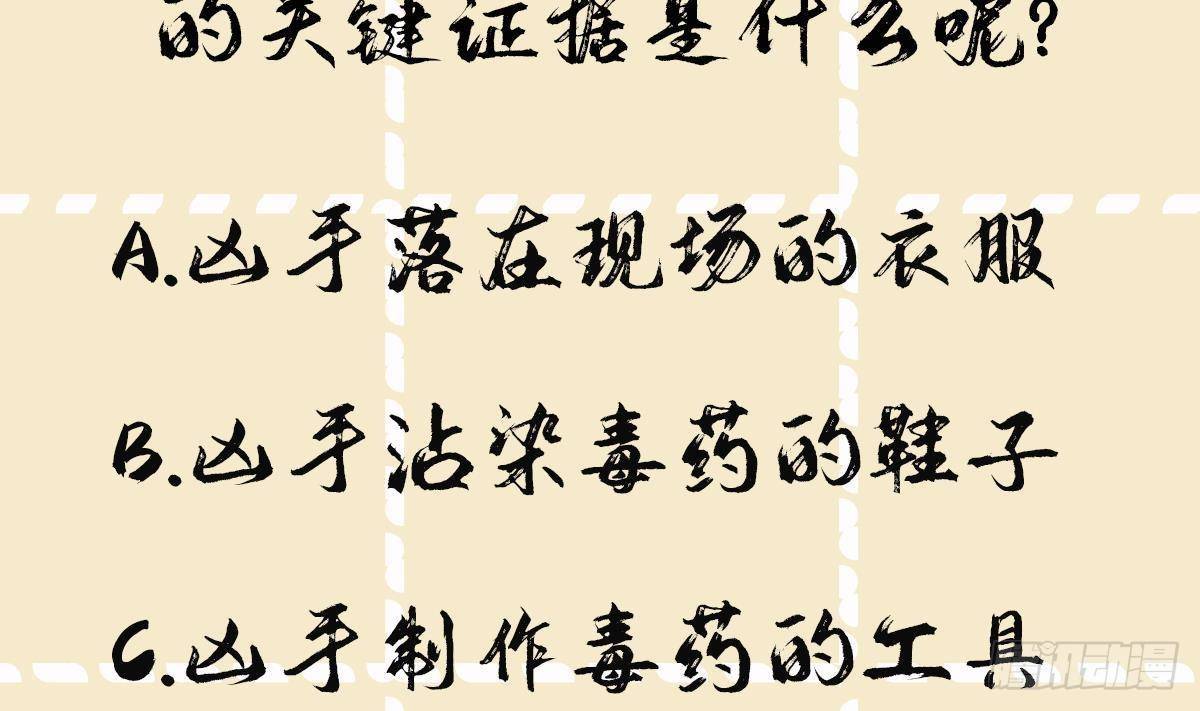 的关键证据是什么呢?
A.凶手落在现场的衣服
B.凶手沾染毒药的鞋子
C.凶手制作毒药的工具
腾讯动漫